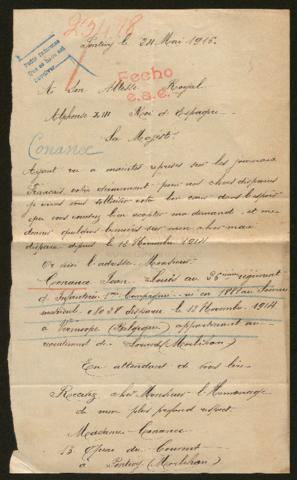 Pontivy le 24 Mai 1916.
Fecho
e.a.e.
A Son Altesse Royal
Alphonse XIII Roi d'Espagne
Sa Majesté
Conance
Ayant vu a maintes reprises sur les journaux
Français votre dévouement pour nos chers disparus
je viens vous solliciter votre bon cœur dans l'espoir
que vous voudrez bien accepter ma demande et me
donner quelques sur mon cher mari
disparu depuis le 13 Novembre 1914
l'adresse Monsieur
Conance Jean Louis au 36 ème régiment
d'Infanterie 5me Compagnie né en 1882 au
matricule disparu le 13 Novembre 1914
à (Belgique) appartenant au
recrutement de (Morbihan)
En attendant de vous lire
Recevez cher Monsieur l'Hommage
de mon plus profond respect
Madame Conance
13 Quai du Couvent
à Pontivy (Morbihan)